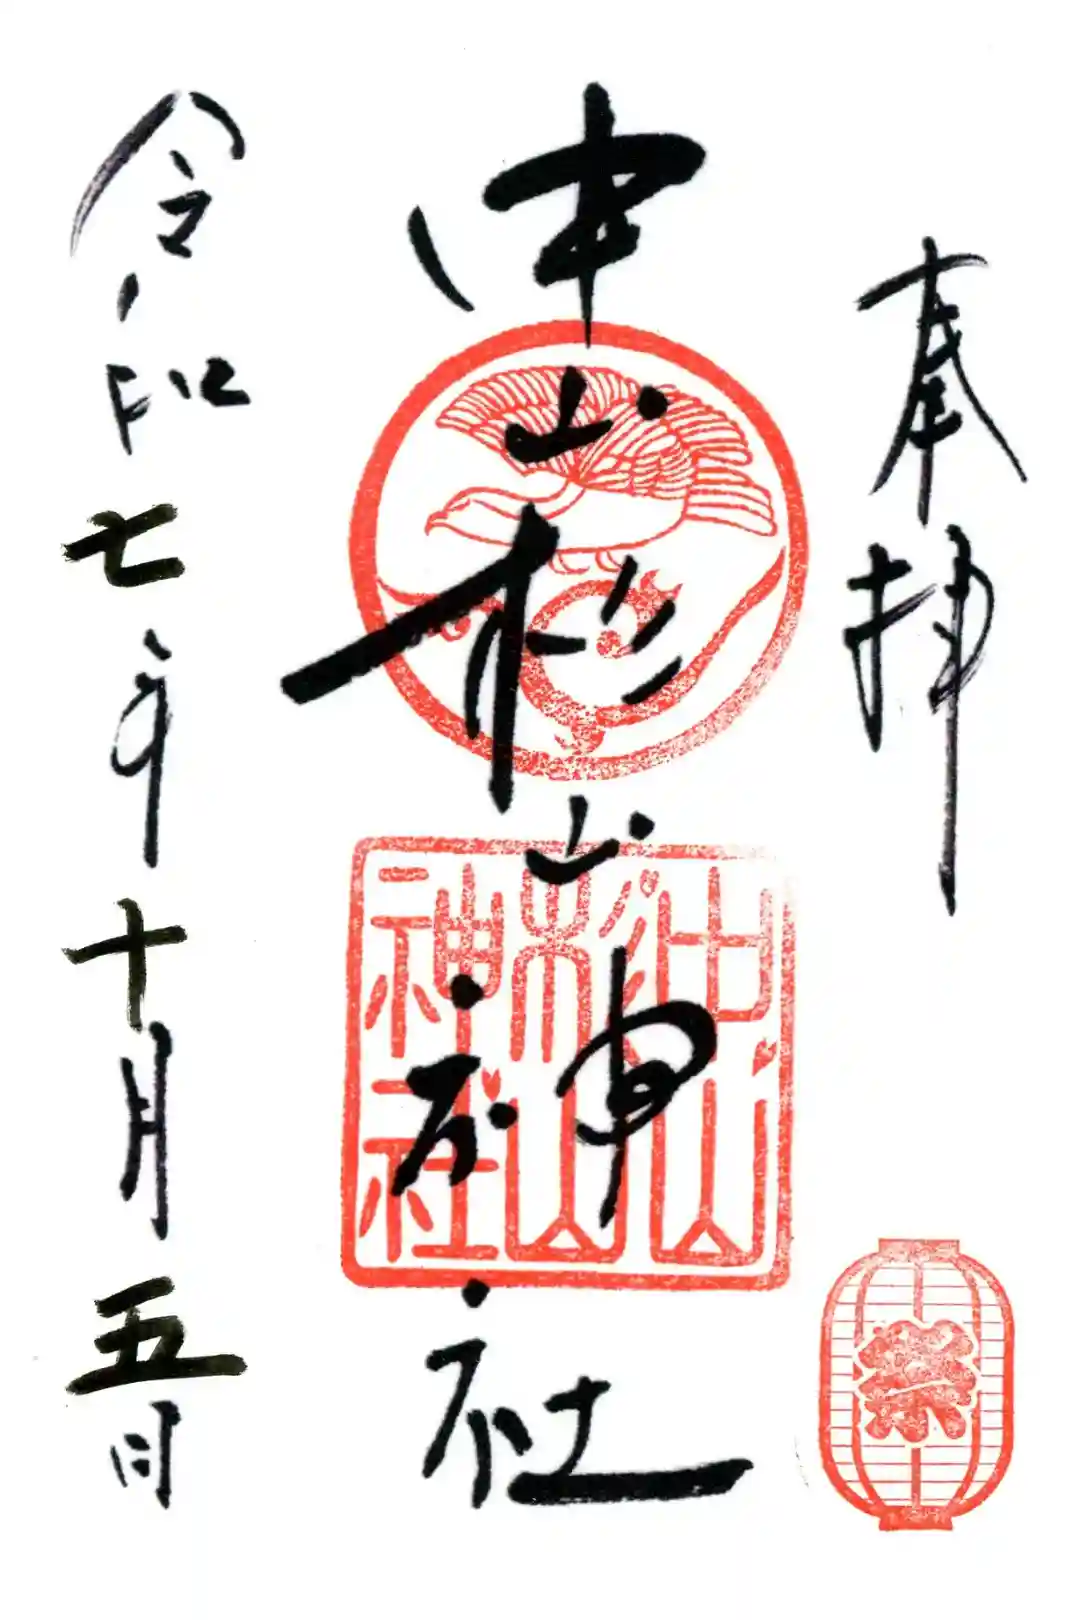 奉拝
中山杉山神社
令和七年十月五日
中山
杉山
神社
祭